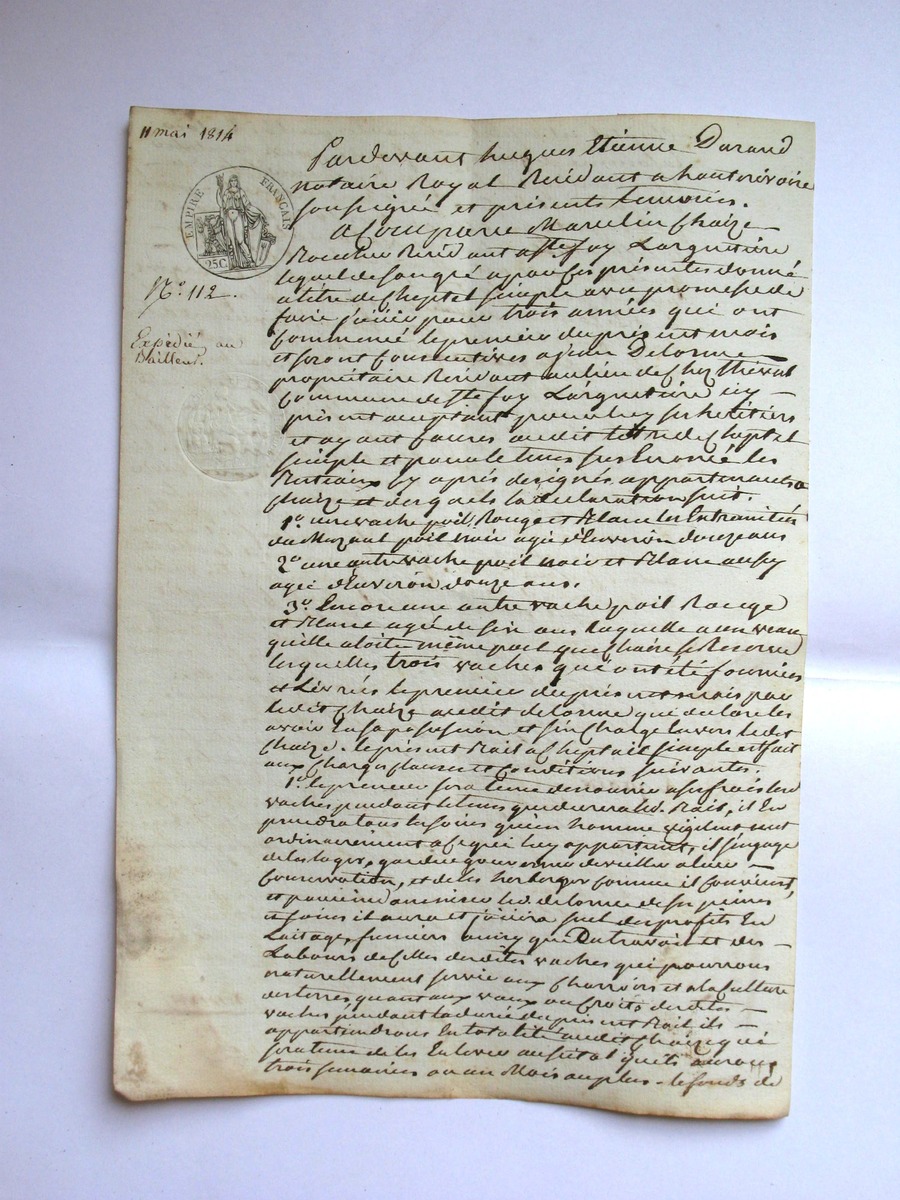 11 mai 1814
EMPIRE FRANÇAIS
25C.
N.o 112.
Expédié au
Bailleur.
Pardevant hugues Etienne Durand
notaire Royal Residant a hauterivoire
soussigné et présents temoins.
A Comparu Marcelin Chaize
Residant a Ste foy Largentière
lequel de son gré a par ces présentes donné
a titre de Cheptel simple avec promesse de
faire jouir pour trois années qui ont
Commencé le premier du présent mois
et seront Consecutives a jean Delorme
propriétaire Residant au lieu de Chez
Commune de Ste foy Largentière icy
présent acceptant pour luy ses heritiers
et ayant Causes audit titre de Cheptel
simple et pour le tems sus Enoncé les
Bestiaux Cy après designés appartenants a
Chaize et desquels la declaration suit.
1o une vache poil Rouge et Blanc les Extremités
du Muzeau poil noir agée d'Environ douze ans
2o une autre vache poil noir et Blanc aussy
agée d'Environ douze ans.
3o Encore une autre vache poil Rouge
et Blanc agée de six ans laquelle a un veau
qu'elle alaite même poil que Chaize se Reserve
lesquelles trois vaches qui ont été fournies
et Livrées le premier du présent mois par
ledit Chaize audit delorme qui declare les
avoir En sa possession et s'en Charge Envers ledit
Chaize. le présent Bail a Cheptail simple est fait
aux Charges Clauses et Conditions suivantes.
1o le preneur sera tenu de nourrir a ses frais les d
vaches pendant le tems que durera led. Bail, il En
prendra tous les soins qu'un homme vigilent met
ordinairement a ce qui luy appartient, il s'engage
de les loger, garder gouverner de veiller a leur
Conservation, et de les herberger Comme il Convient,
et pour led. delorme de ses peines
et soins il aura et jouira seul des profits En
Laitage, fumiers ainsy que Du travail et des
Labours de Celles desdites vaches qui pourront
naturellement servir aux Charrois et a la Culture
des terres quant aux veaux ou Croits desdites
vaches pendant la durée du présent Bail ils
appartiendront En totalité audit Chaize qui
sera tenu de les Enlever aussitot qu'ils auront
trois semaines ou un Mois au plus - le fonds de